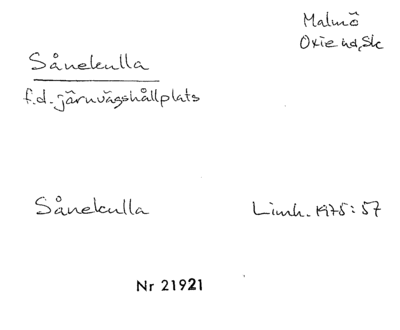 Malmö
Oxie hd, Sk
Sånekulla
f.d. järnvägshållplats
Sånekulla Limh. 1975:57
Nr 21921